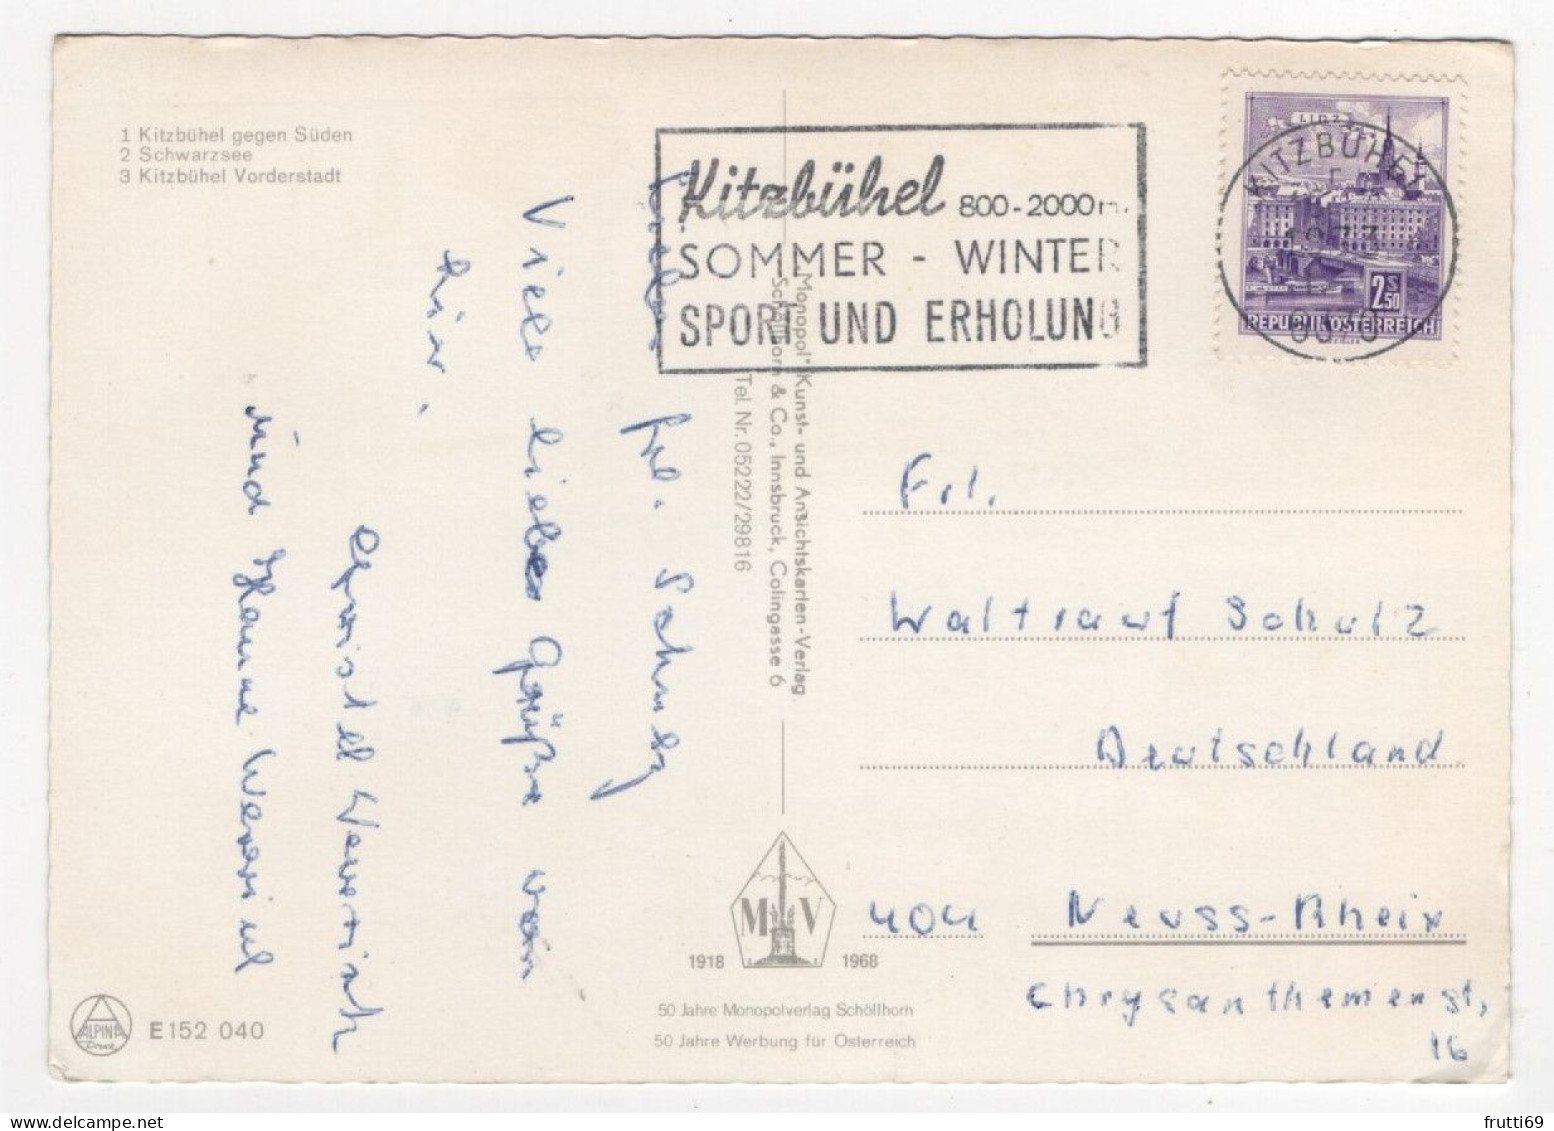 1 Kitzbühel gegen Süden
2 Schwarzsee
3 Kitzbühel Vorderstadt
Kitzbühel 800-2000 m.
SOMMER - WINTER
SPORT UND ERHOLUNG
KITZBÜHEL
LINZ
2 S 50
REPUBLIK ÖSTERREICH
"Monopol" Kunst- und Ansichtskarten-Verlag
Schöllhorn & Co., Innsbruck, Colingasse 6
Tel. Nr. 05222/29816
Frl. Schulz
Viele liebe Grüße von
hier.
Christel
und Hanne
Frl.
Waltraut Schulz
Deutschland
404 Neuss-Rhein
Chrysanthemenst,
16
M V
1918 1968
50 Jahre Monopolverlag Schöllhorn
50 Jahre Werbung für Österreich
ALPINA
Druck
E 152 040
frutti69